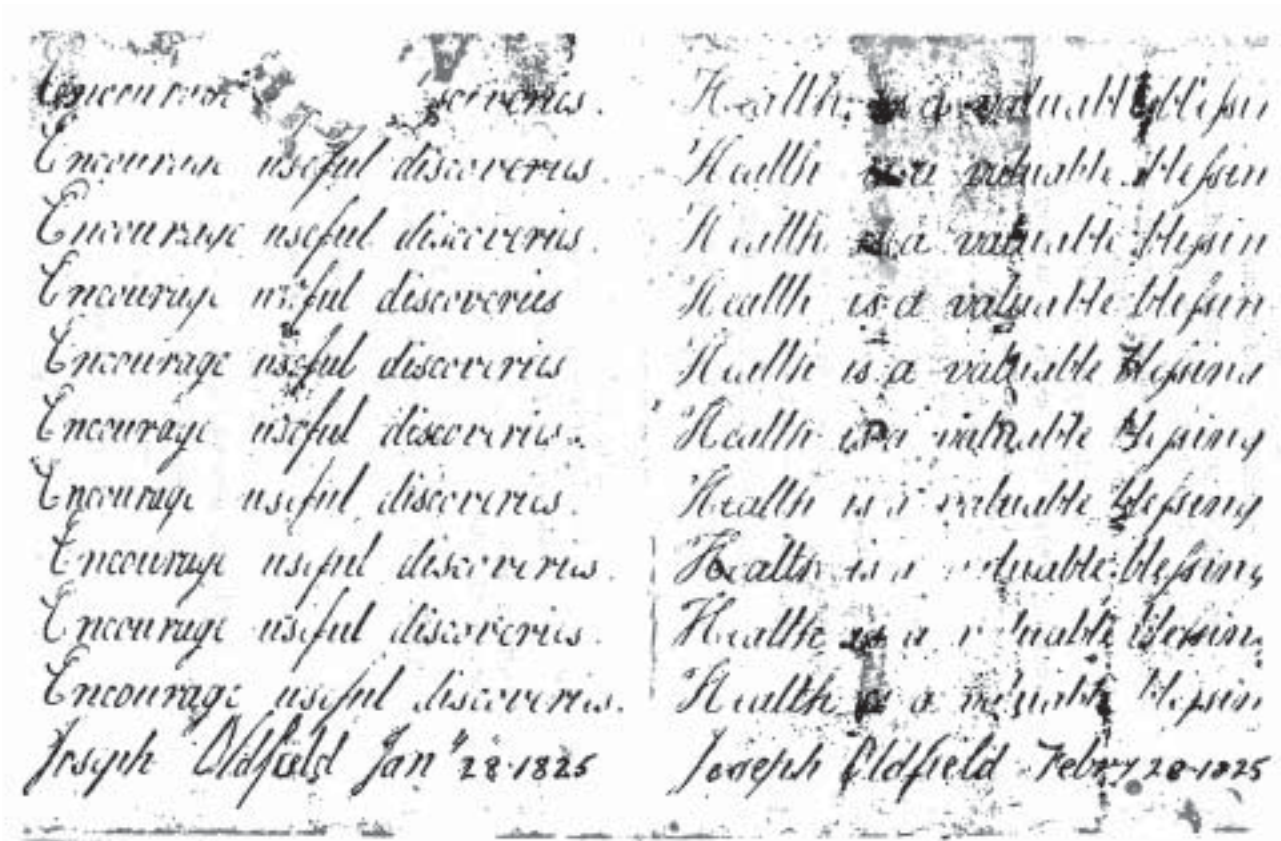 Encourage scoveries.
Encourage useful discoveries.
Encourage useful discoveries.
Encourage useful discoveries
Encourage useful discoveries
Encourage useful discoveries.
Encourage useful discoveries.
Encourage useful discoveries.
Encourage useful discoveries.
Encourage useful discoveries.
Joseph Oldfield Jan" 28-1825
Health is a valuable blessin
Health is a valuable blessin
Health is a valuable blessin
Health is a valuable blessin
Health is a valuable blessing
Health is a valuable blessing
Health is a valuable blessing
Health is a valuable blessing
Health is a valuable blessin
Health is a valuable blessin
Joseph Oldfield Febry 28-1825